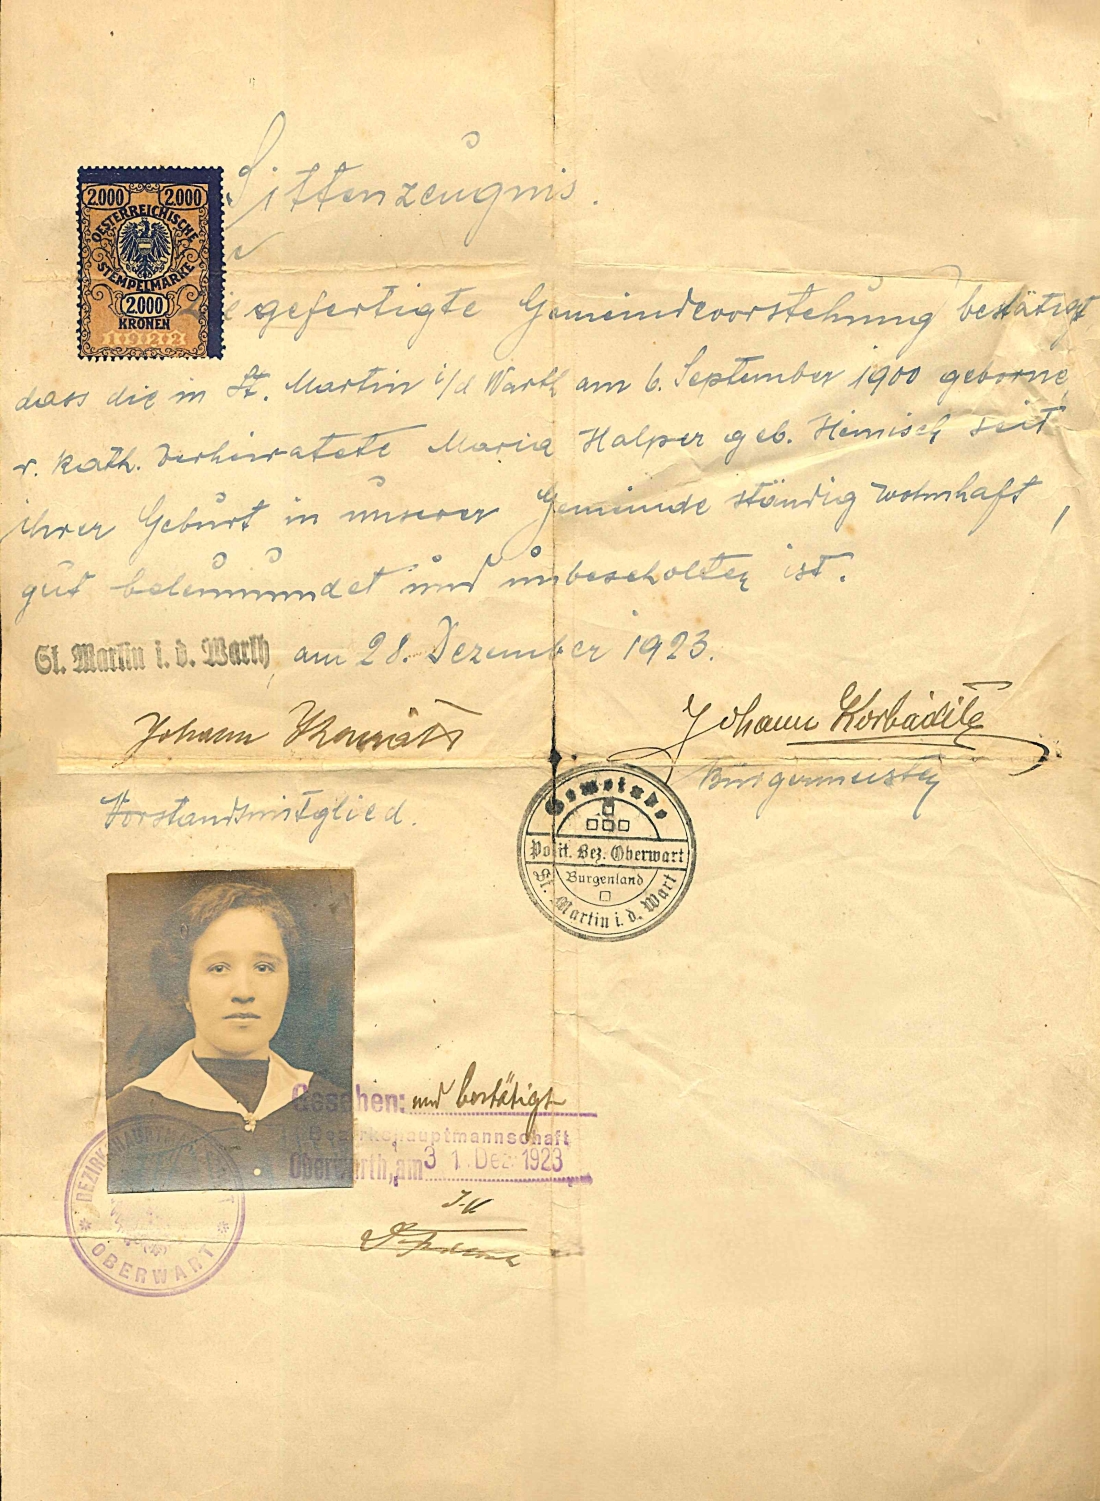 Sittenzeugnis.
2.000 2.000
OESTERREICHISCHE
STEMPELMARKE
2.000
KRONEN
1922
Die gefertigte Gemeindevorstehung bestätigt
dass die in St. Martin i/d Warth am 6. September 1900 geborne,
r. kath. verheiratete Maria Halper geb. Heinisch seit
ihrer Geburt in unserer Gemeinde ständig wohnhaft,
gut beleumundet und unbescholten ist.
St. Martin i. d. Warth, am 28. Dezember 1923.
Johann Johann Korbaditz
Bürgermeister
Vorstandsmitglied.
Gemeinde
Polit. Bez. Oberwart
Burgenland
St. Martin i. d. Wart
Gesehen: und bestätigt
Bezirkshauptmannschaft
Oberwarth, am 31. Dez. 1923
I.V.
BEZIRKSHAUPTMANNSCHAFT
* OBERWART *